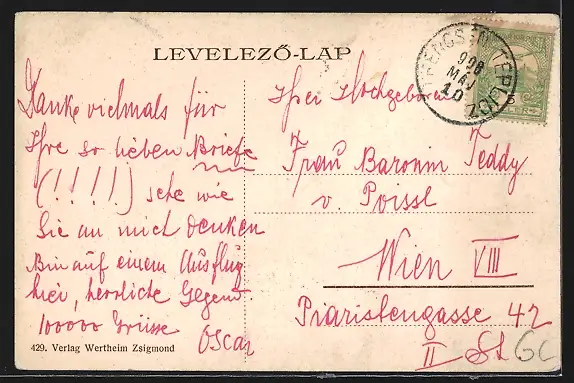 LEVELEZŐ-LAP
TRENCSÉN-TEPLICZ
908
MÁJ
10
Danke vielmals für
Ihre so lieben Briefe
(!!!!) sehe wie
Sie an mich denken
Bin auf einem Ausflug
hier, herrliche Gegend.
100000 Grüsse
Oscar
Ihrer Hochgeboren
Frau Baronin Teddy
v. Poissl
Wien VIII
Piaristengasse 42
II St
429. Verlag Wertheim Zsigmond